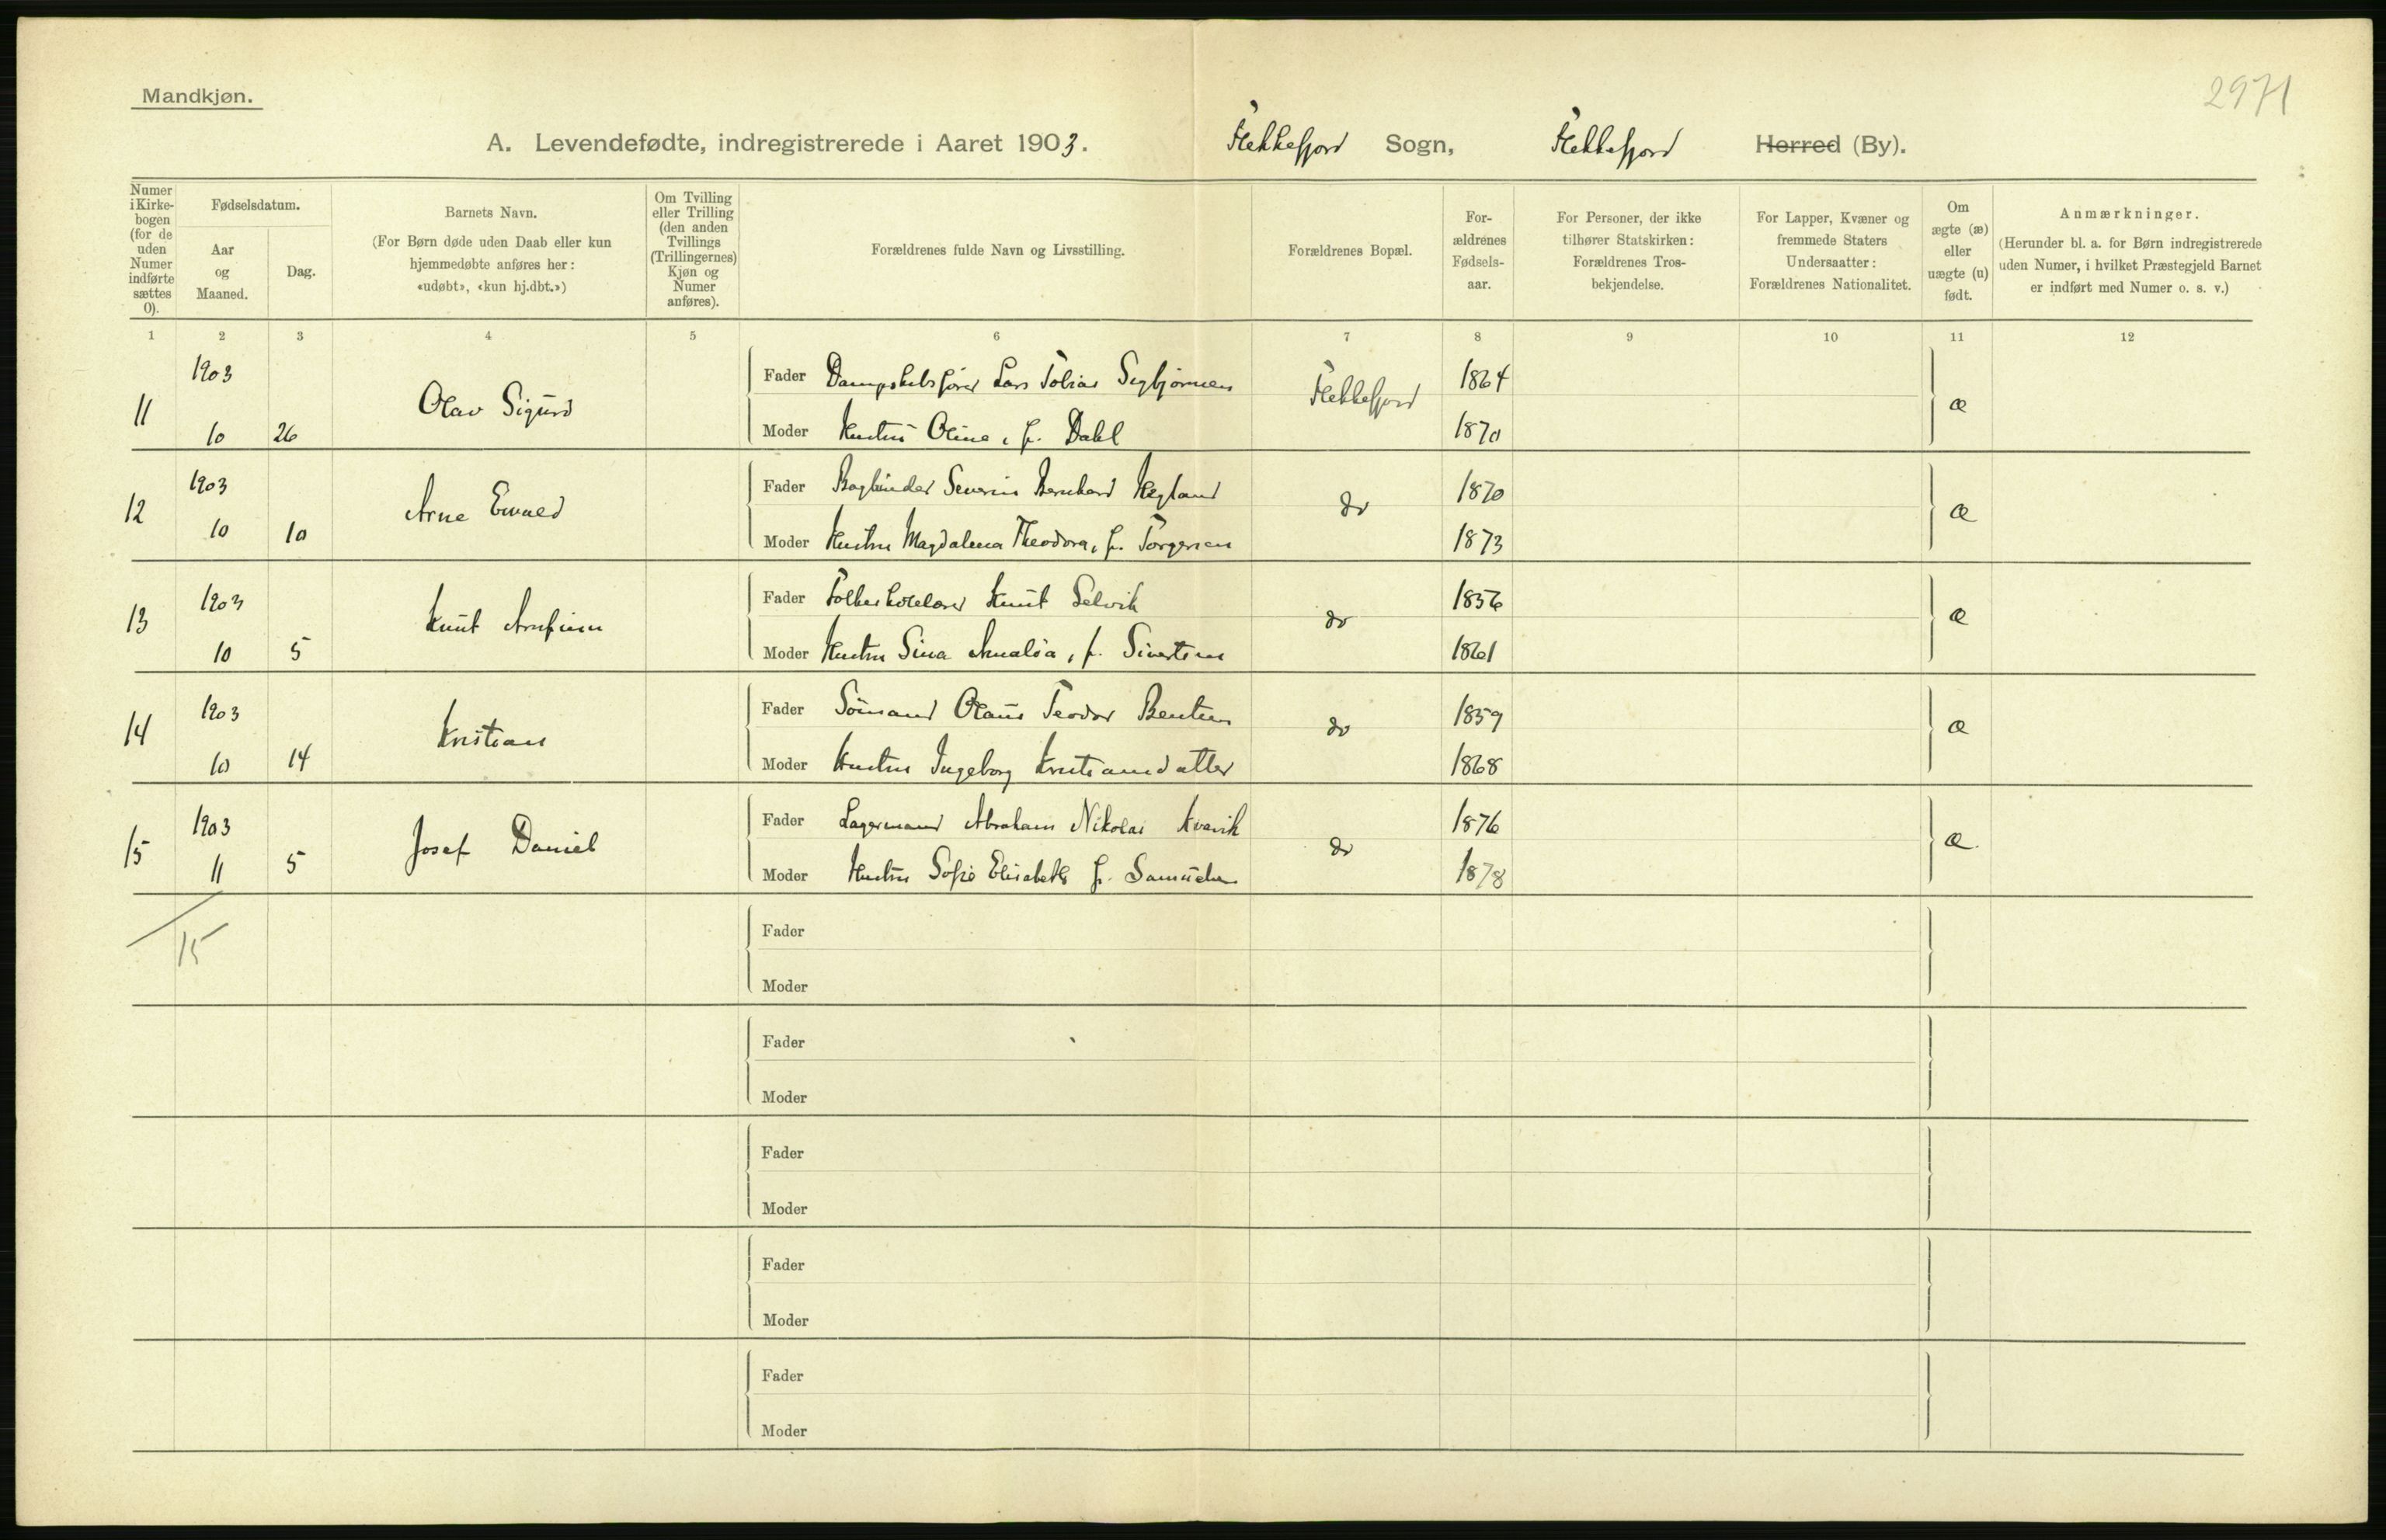 Mandkjøn.
2971
A. Levendefødte, indregistrerede i Aaret 1903. Flekkefjord Sogn, Flekkefjord Herred (By).
Numer i Kirke-bogen (for de uden Numer indførte sættes 0).
Fødselsdatum.
Aar og Maaned.
Dag.
Barnets Navn.
(For Børn døde uden Daab eller kun hjemmedøbte anføres her: «udøbt», «kun hj.dbt.»)
Om Tvilling eller Trilling (den anden Tvillings (Trillingernes) Kjøn og Numer anføres).
Forældrenes fulde Navn og Livsstilling.
Forældrenes Bopæl.
For-ældrenes Fødsels-aar.
For Personer, der ikke tilhører Statskirken: Forældrenes Tros-bekjendelse.
For Lapper, Kvæner og fremmede Staters Undersaatter: Forældrenes Nationalitet.
Om ægte (æ) eller uægte (u) født.
Anmærkninger.
(Herunder bl. a. for Børn indregistrerede uden Numer, i hvilket Præstegjeld Barnet er indført med Numer o. s. v.)
1 2 3 4 5 6 7 8 9 10 11 12
11 1903 10 26 Olav Sigurd
Fader Dampskibsfører Lars Tobias Sigbjørnsen Flekkefjord 1864 æ
Moder Hustru Oline, f. Dahl 1870
12 1903 10 10 Arne Ewald
Fader Bogbinder Severin Bernhard Hegland do 1870 æ
Moder Hustru Magdalena Theodora, f. Torgersen 1873
13 1903 10 5 Knut Arnfinn
Fader Folkeskolelærer Knut Selvik do 1856 æ
Moder Hustru Sina Amalia, f. Sivertsen 1861
14 1903 10 14 Kristian
Fader Sømand Olaus Teodor Bentsen do 1859 æ
Moder Hustru Ingeborg Kristiansdatter 1868
15 1903 11 5 Josef Daniel
Fader Lagermand Abraham Nikolai Kvavik do 1876 æ.
Moder Hustru Sofie Elisabeth f. Samuelsen 1878
15
Fader
Moder
Fader
Moder
Fader
Moder
Fader
Moder
Fader
Moder